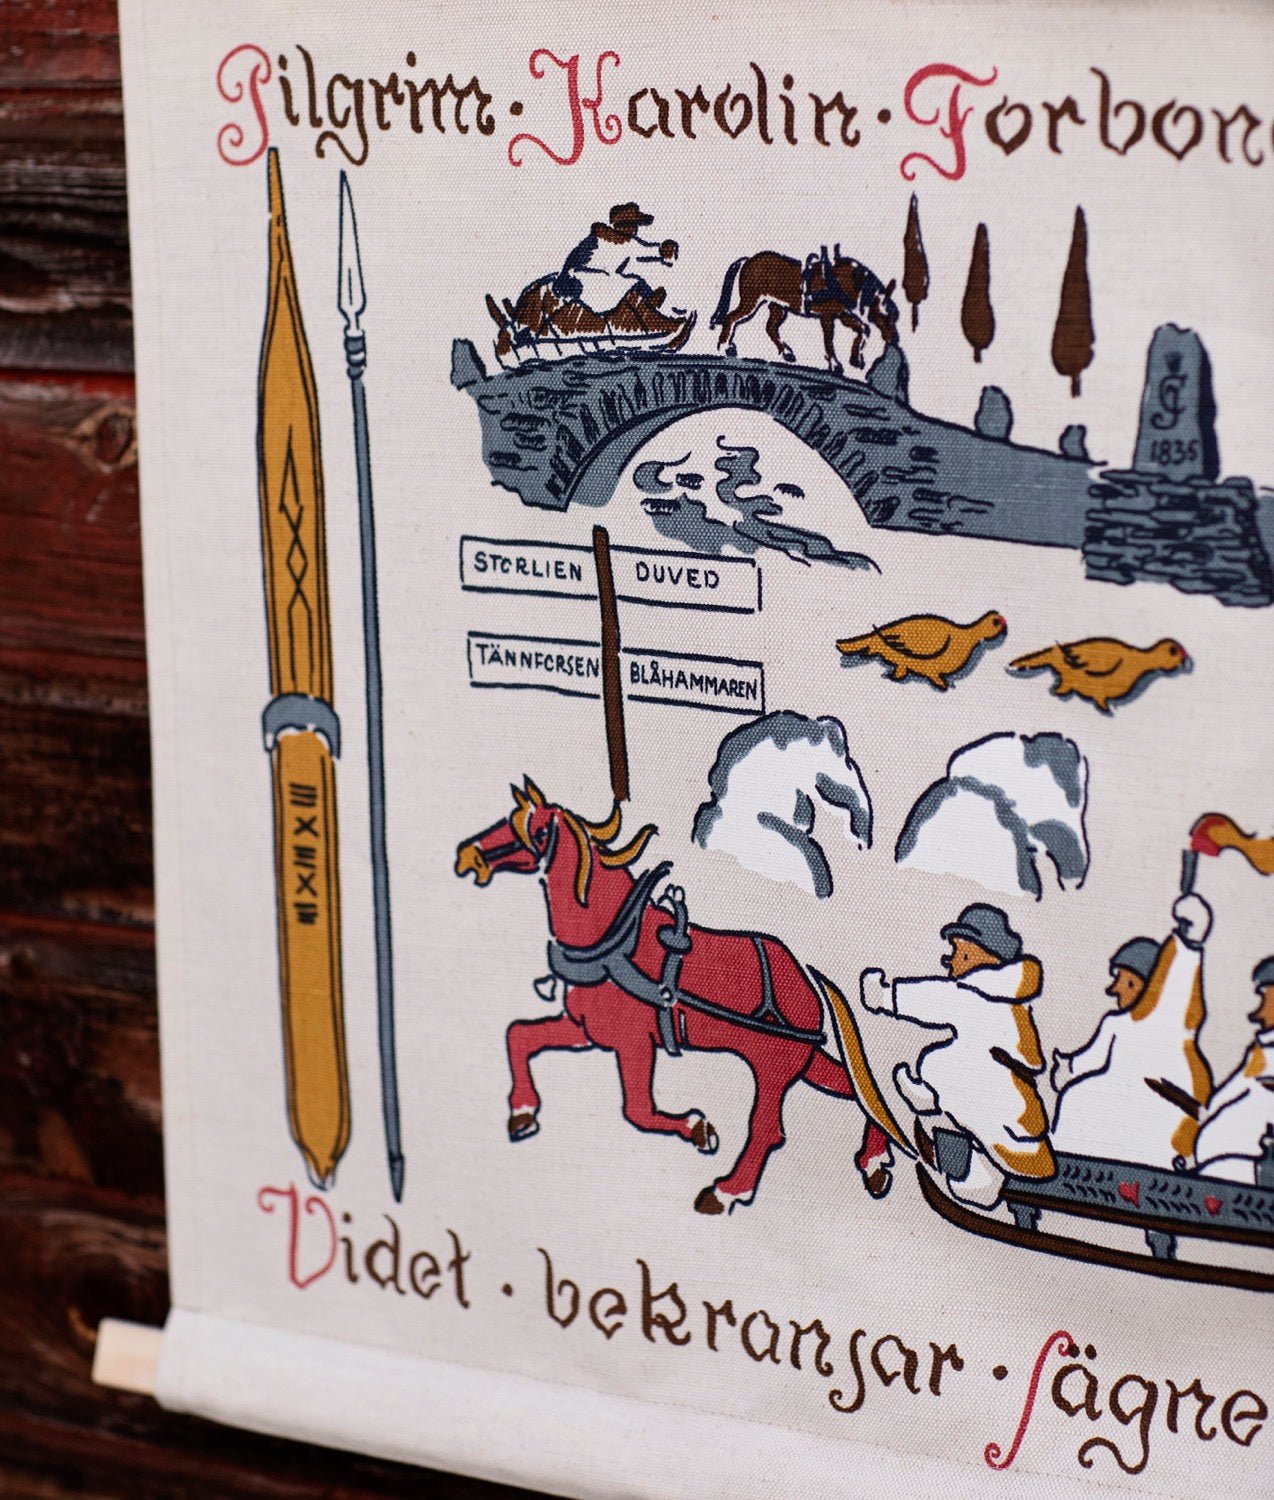 Pilgrim · Karolin · Forbon
1835
STORLIEN DUVED
TÄNNFORSEN BLÅHAMMAREN
Videt · bekransar · sägne